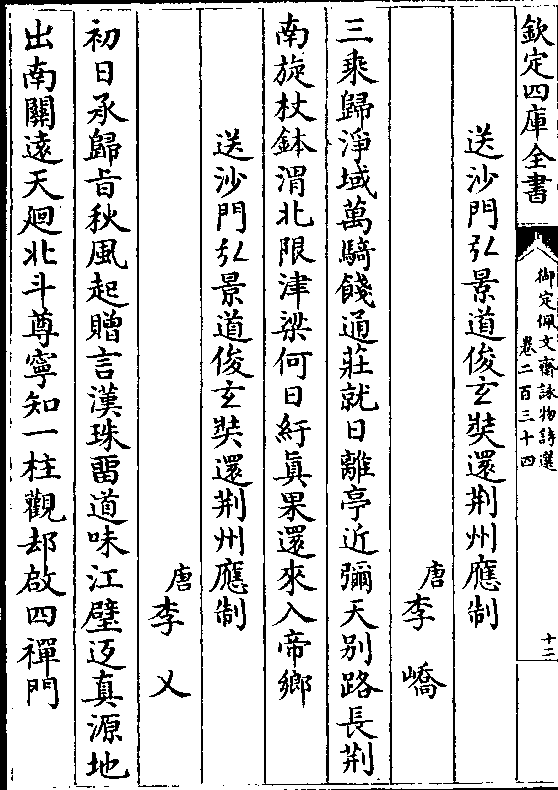 欽定四庫全書
御定佩文齋詠物詩選
卷二百三十四
十二
送沙門弘景道俊玄奘還荆州應制
唐李嶠
三乘歸淨域萬騎餞通莊就日離亭近彌天别路長荆
南旋杖鉢渭北限津梁何日紆真果還來入帝鄉
送沙門弘景道俊玄奘還荆州應制
唐李乂
初日承歸旨秋風起贈言漢珠留道味江壁返真源地
出南關遠天廻北斗尊寧知一柱觀却啟四禪門